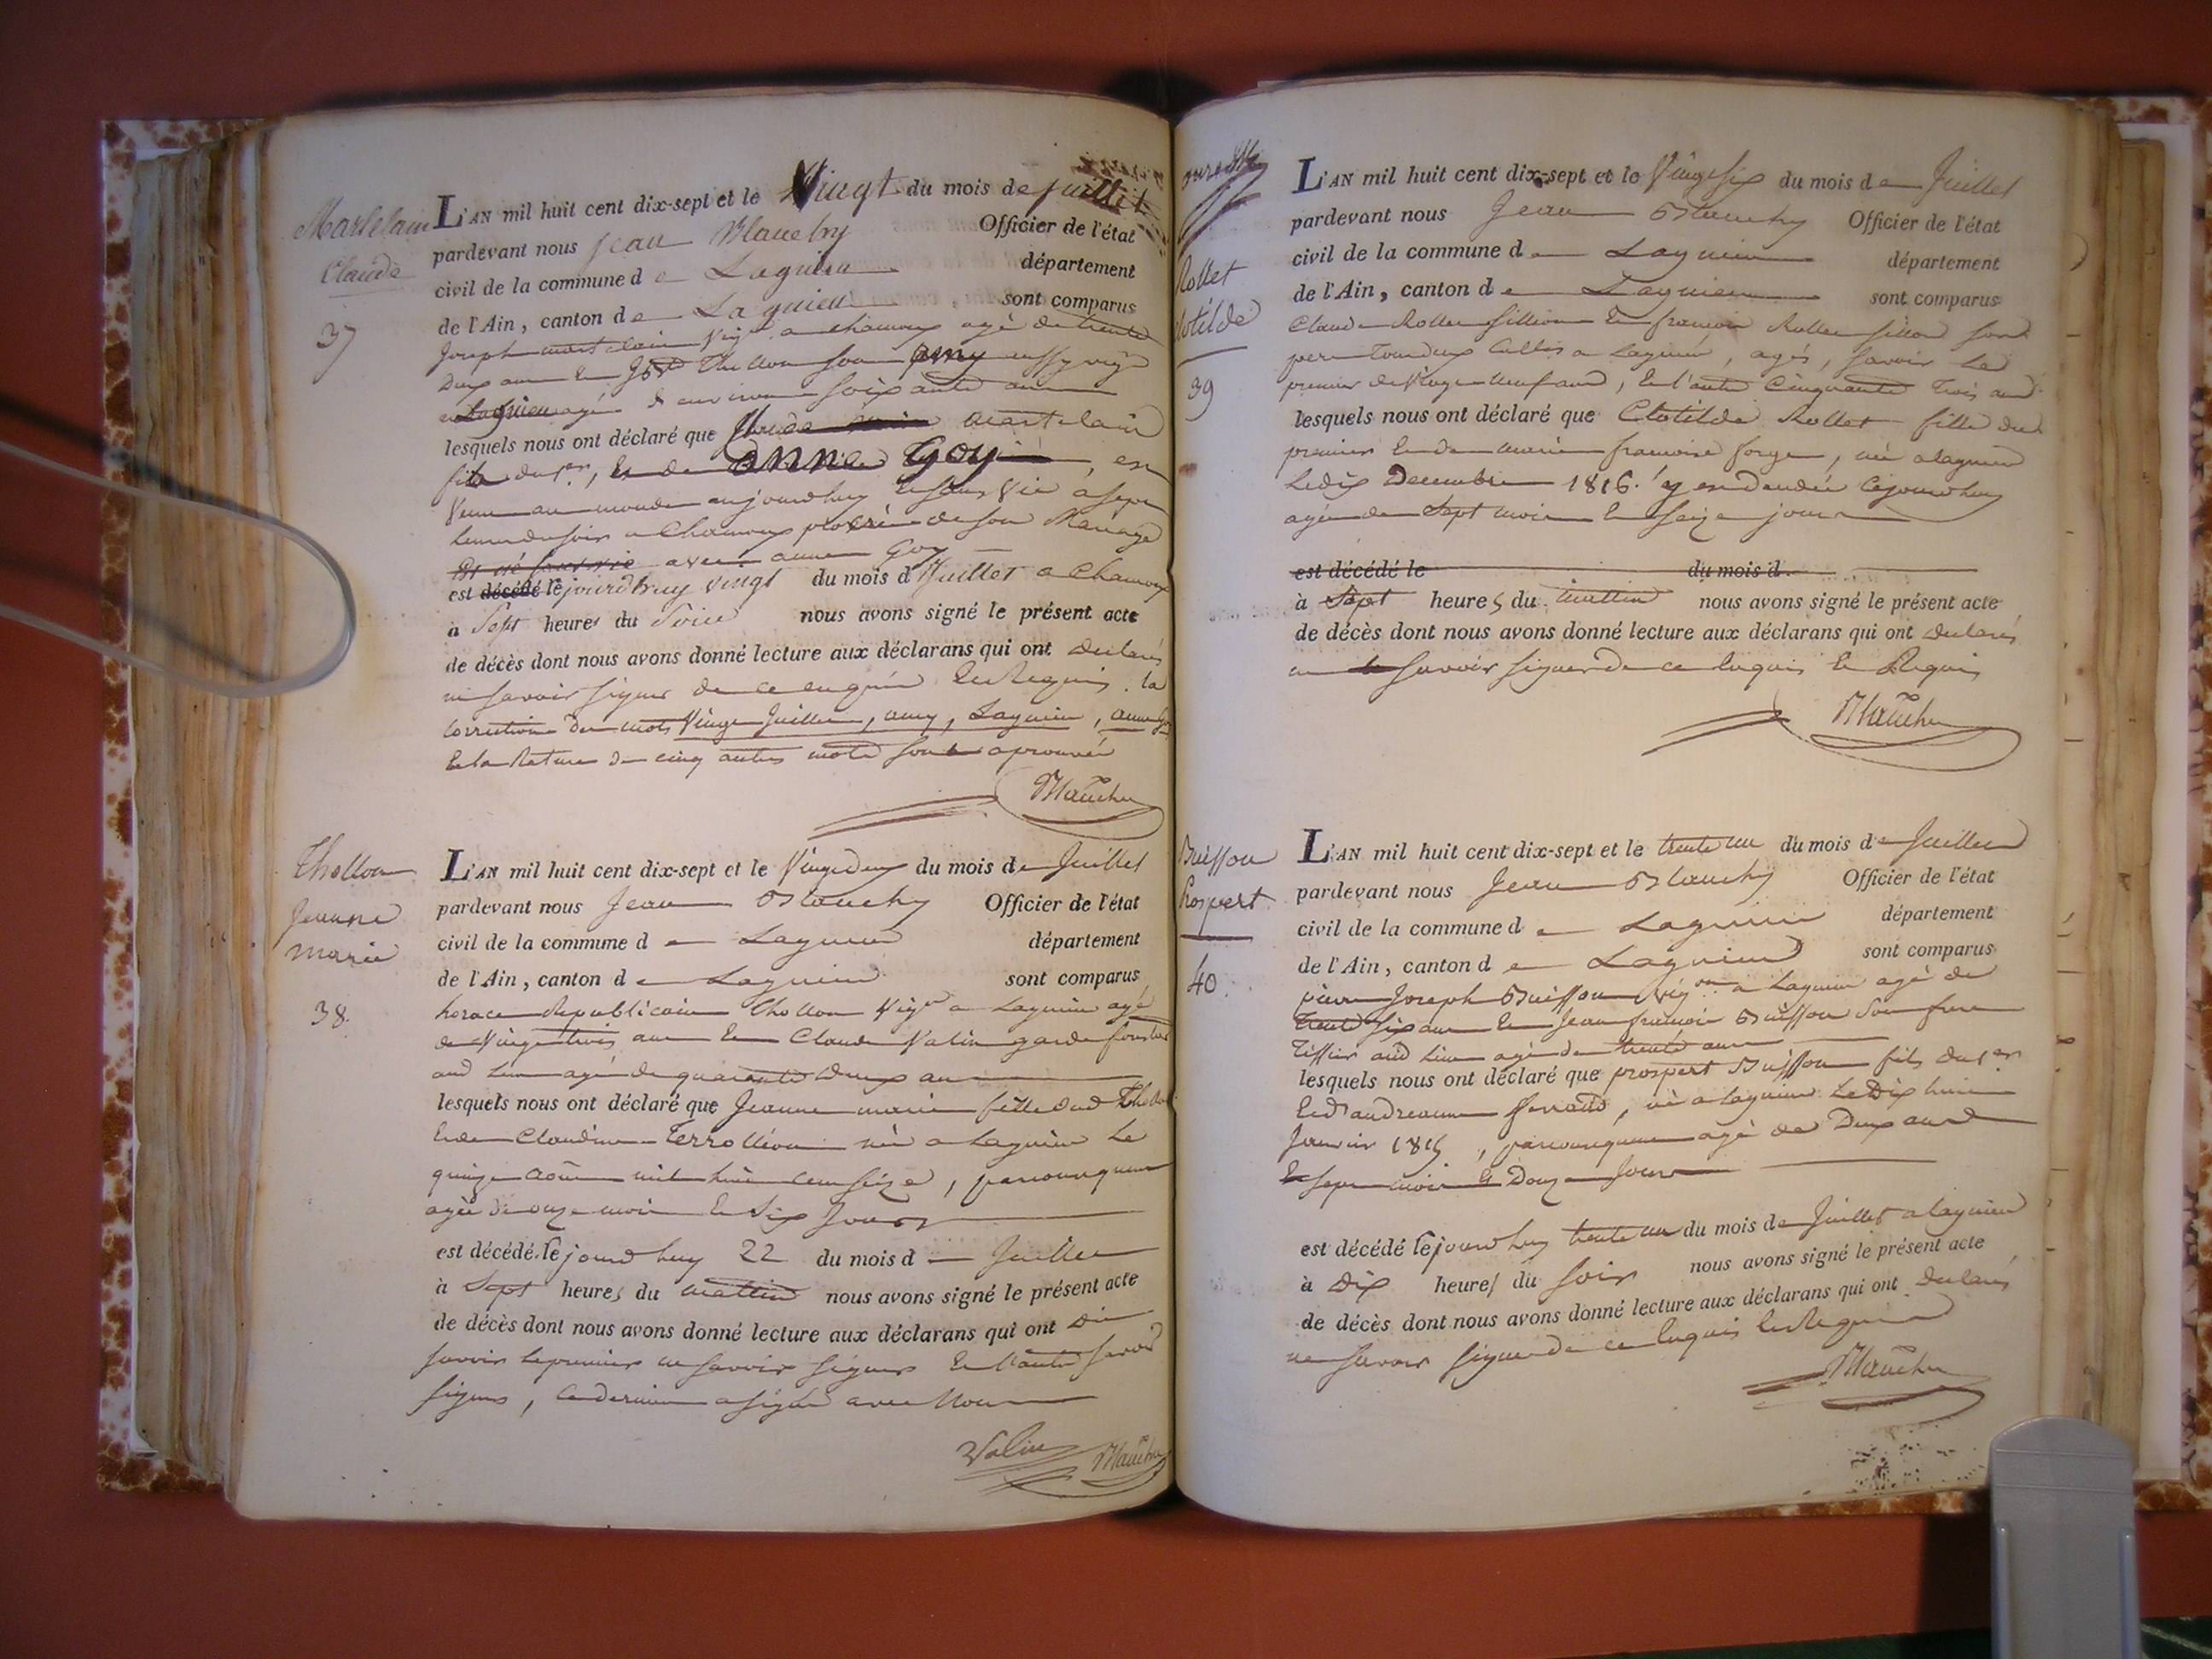 Martelain
Claude
37
L'AN mil huit cent dix-sept et le Vingt du mois de juillet
pardevant nous jean Blanchy Officier de l'état
civil de la commune de Lagnieu département
de l'Ain, canton de Lagnieu sont comparus
Joseph martelain Vig.on a chamoux agé de trente
Deux ans et Thollon son amy aussy vig.on
a Lagnieu agé d'environ soixante ans
lesquels nous ont déclaré que Claude martelain
fils du 1er, et de anne Goy, est
Venu au monde aujourdhuy et sans Vie à sept
heures du soir a Chamoux procréé de son Mariage
avec anne Goy
est décédé le jourdhuy vingt du mois d Juillet a Chamoux
à Sept heures du Soir nous avons signé le présent acte
de décès dont nous avons donné lecture aux déclarans qui ont declarés
ne savoir signer de ce enquis et Requis. la
correction des mots Vingt Juillet, amy, Lagnieu, anne Goy
et la Rature de cinq autres mots sont aprouvés
Blanchy
Thollon
Jeanne
marie
38.
L'AN mil huit cent dix-sept et le Vingt deux du mois de Juillet
pardevant nous Jean Blanchy Officier de l'état
civil de la commune de Lagnieu département
de l'Ain, canton de Lagnieu sont comparus
horace Republicain Thollon Vig.on a Lagnieu agé
de Vingt trois ans et Claude Valin garde forestier
aud Lieu agé de quarante Deux ans
lesquels nous ont déclaré que Jeanne marie fille dud Thollon
et de Claudine né a Lagnieu Le
quinze août mil huit cent seize, par conséquent
agée de onze mois et Six Jours
est décédé le jourdhuy 22 du mois de Juillet
à Sept heures du mattin nous avons signé le présent acte
de décès dont nous avons donné lecture aux déclarans qui ont Dit
savoir le premier ne savoir signer et l'autre savoir
signer, ce dernier a signé avec Nous
Valin Blanchy
Rollet
Clotilde
39
L'AN mil huit cent dix-sept et le Vingt six du mois de Juillet
pardevant nous Jean Blanchy Officier de l'état
civil de la commune de Lagnieu département
de l'Ain, canton de Lagnieu sont comparus
Claude Rollet fillion et françois Rollet fillion son
pere tous deux a Lagnieu, agés, savoir Le
premier de Vingt neuf ans, et l'autre Cinquante trois ans
lesquels nous ont déclaré que Clotilde Rollet fille du
premier et de marie françoise forge, né a Lagnieu
Le dix Decembre 1816. y est decedée Cejourdhuy
agée de Sept mois et seize jours
est décédé le du mois d
à Sept heures du mattin nous avons signé le présent acte
de décès dont nous avons donné lecture aux déclarans qui ont declarés
ne savoir signer de ce enquis et Requis
Blanchy
Buisson
Prospert
40.
L'AN mil huit cent dix-sept et le trente un du mois de Juillet
pardevant nous Jean Blanchy Officier de l'état
civil de la commune de Lagnieu département
de l'Ain, canton de Lagnieu sont comparus
pierre Joseph Buisson Vig.on a Lagnieu agé de
trente six ans et Jean françois Buisson Son frere
Tissier aud Lieu agé de trente ans
lesquels nous ont déclaré que prospert Buisson fils du 1er
et d'andreanne ferrand, né a Lagnieu Le Dix huit
Janvier 1815, par conséquent agé de Deux ans
et sept mois et Douze Jours
est décédé le jourdhuy trente un du mois de Juillet a lagnieu
à Dix heures du soir nous avons signé le présent acte
de décès dont nous avons donné lecture aux déclarans qui ont declarés
ne savoir signer de ce enquis et Requis
Blanchy